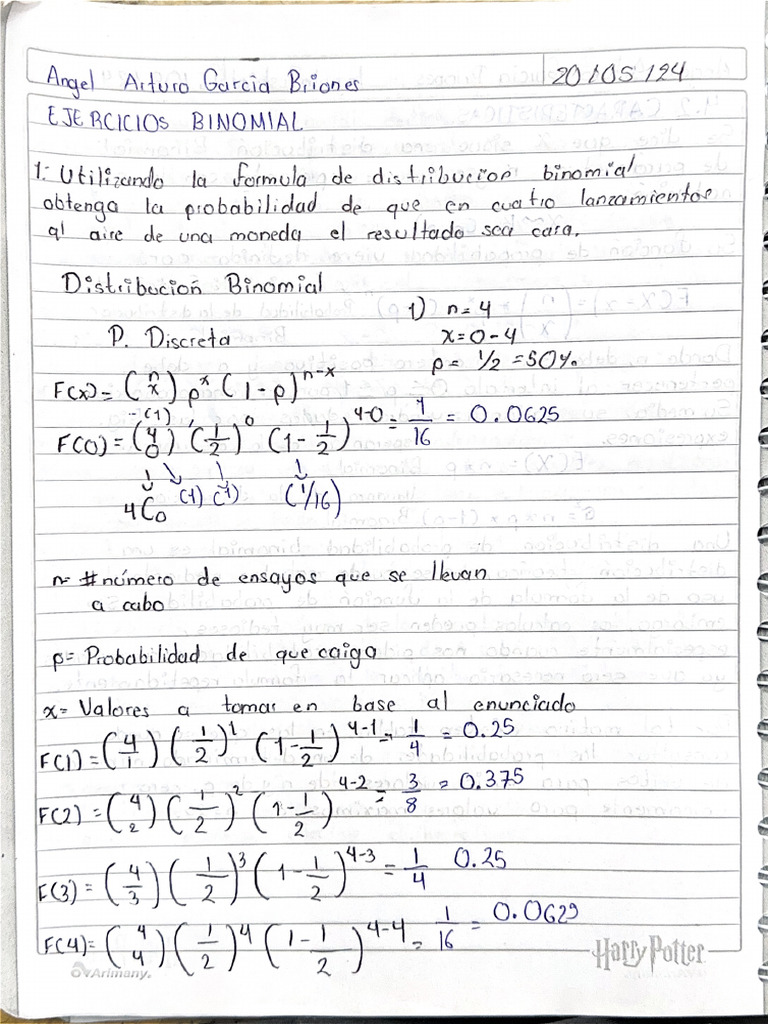 Angel Arturo Garcia Briones 20/05/24
EJERCICIOS BINOMIAL
1: Utilizando la formula de distribucion binomial
obtenga la probabilidad de que en cuatro lanzamientos
al aire de una moneda el resultado sea cara.
Distribución Binomial
1) n=4
P. Discreta x=0-4
p= 1/2 =50%
F(x)=(n x) p^x (1-p)^n-x
-(1)
F(0)=(4 0) (1/2)^0 (1-1/2)^4-0 = 1/16 = 0.0625
(1) (1) (1/16)
4C0
n= #número de ensayos que se llevan
a cabo
p= Probabilidad de que caiga
x= Valores a tomar en base al enunciado
F(1)=(4 1) (1/2)^1 (1-1/2)^4-1 = 1/4 = 0.25
F(2)=(4 2) (1/2)^2 (1-1/2)^4-2 = 3/8 = 0.375
F(3)=(4 3) (1/2)^3 (1-1/2)^4-3 = 1/4 0.25
F(4)=(4 4) (1/2)^4 (1-1/2)^4-4 = 1/16 = 0.0625
Arimany. Harry Potter